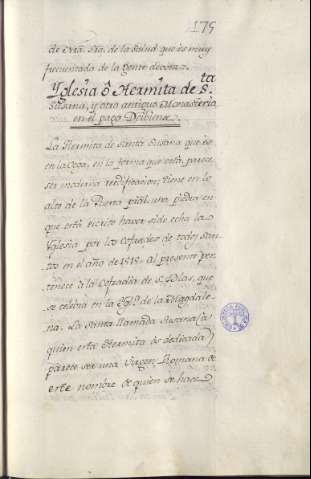 175
de Ntra. Sra. de la Salud que es muy
frecuentada de la gente devota.
Yglesia ò Hermita de S.ta
Susana, y otro antiguo Monasterio
en el pago
La Hermita de Santa Susana que es
en la Cogo, en la forma que está, parece
ser moderna reedificacion; tiene en lo
alto de la Puerta pral. una piedra en
que está escrito haver sido echa la
Yglesia por los Cofrades de todos San-
tos en el año de Al presente per-
tenece à la Cofradia de S. Blas, que
se celebra en la Ygl.ª de la Magdale-
na. La Santa llamada Susana (a
quien esta Hermita és dedicada)
parece ser una Virgen Romana de
este nombre de quien se hace